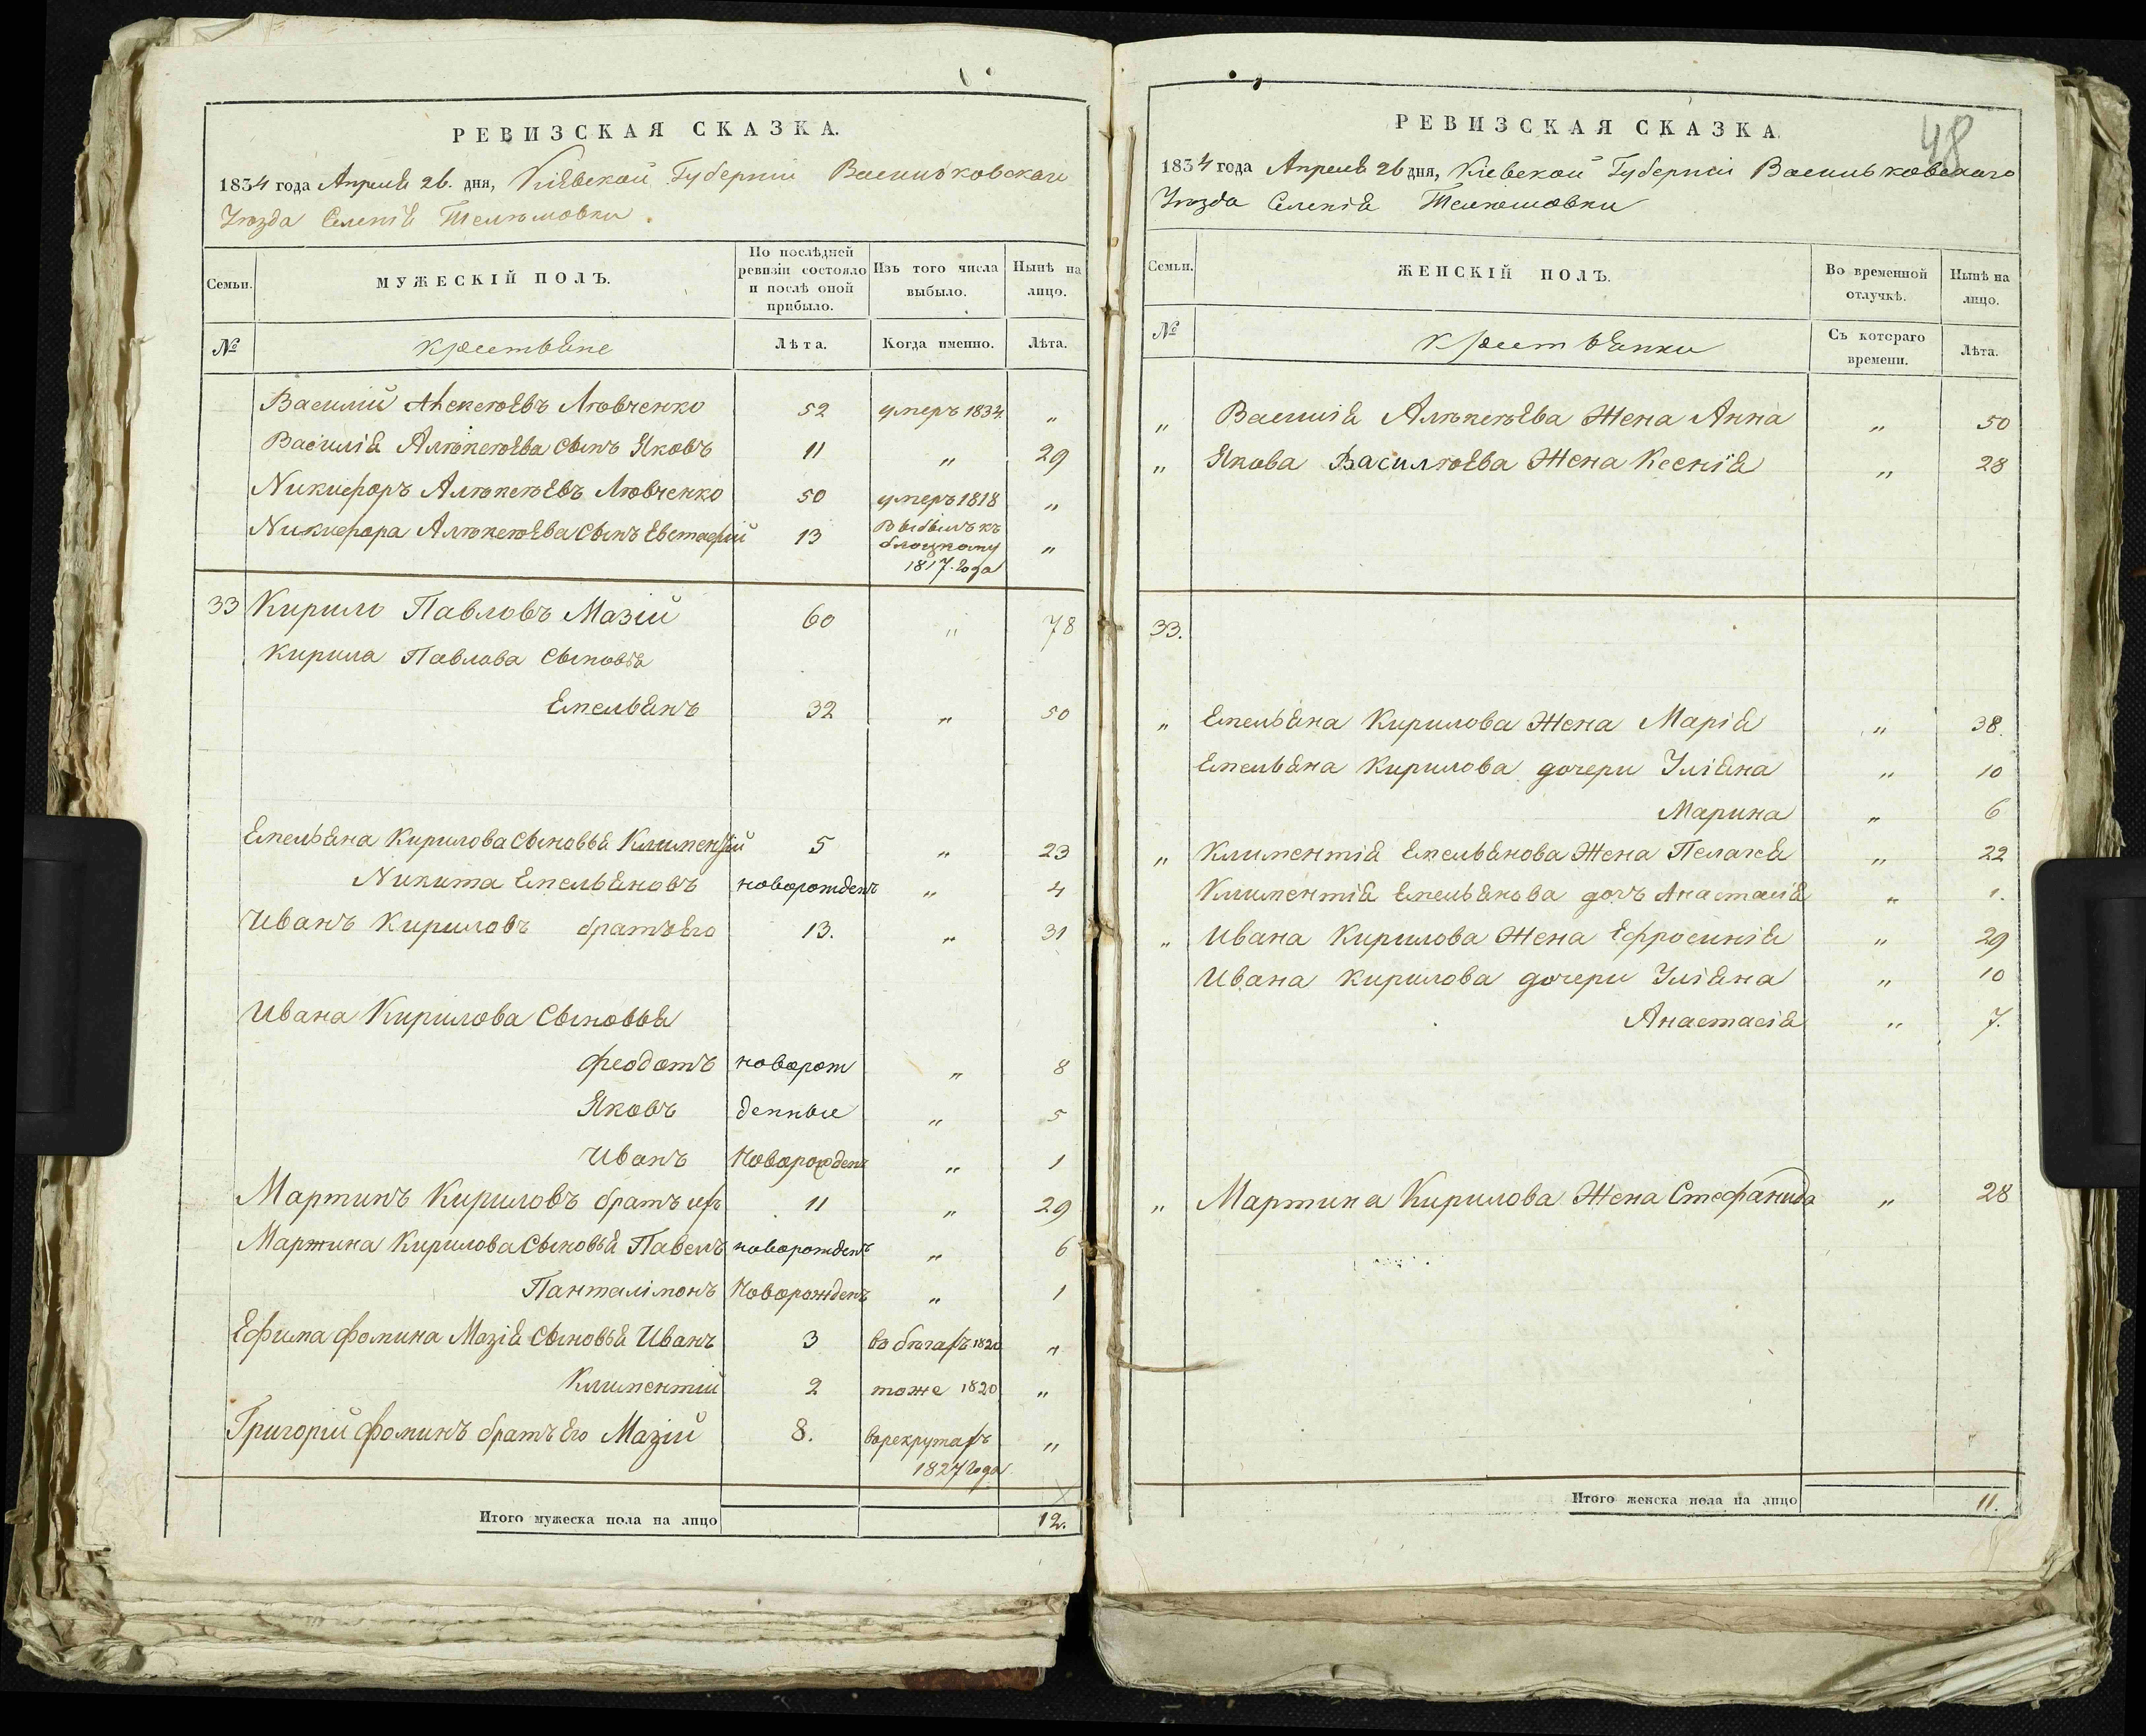 РЕВИЗСКАЯ СКАЗКА.
1834 года Апреля 26. дня, Кіевской Губерніи Васильковскаго
Уезда Селенія
Семьи. МУЖЕСКІЙ ПОЛЪ. По послѣдней ревизіи состояло и послѣ оной прибыло. Изъ того числа выбыло. Нынѣ на лицо.
№ Крестьяне Лѣта. Когда именно. Лѣта.
Василий Алексѣевъ Ловченко 52 умеръ 1834 "
Василія Алексѣева Сынъ Яковъ 11 " 29
Никифоръ Алексѣевъ Ловченко 50 умеръ 1818 "
Никифора Алексѣева Сынъ Евстафий 13 Выбылъ къ 1817. года "
33 Кирило Павловъ Мазій 60 " 78
Кирила Павлова Сыновья
Емельянъ 32 " 50
Емельяна Кирилова Сыновья Климентій 5 " 23
Никита Емельяновъ новорожденъ " 4
Иванъ Кириловъ братъ его 13. " 31
Ивана Кирилова Сыновья
Феодотъ новорож " 8
Яковъ денные " 5
Иванъ Новорожденъ " 1
Мартинъ Кириловъ братъ ихъ 11 " 29
Мартина Кирилова Сыновья Павелъ новорожденъ " 6
Панталімонъ Новорожденъ " 1
Ефима Фомина Мазія Сыновья Иванъ 3 въ бѣгахъ 1820 "
Климентий 2 тоже 1820 "
Григорій Фоминъ братъ его Мазій 8. в рекрутахъ 1827 года "
Итого мужеска пола на лицо 12.
РЕВИЗСКАЯ СКАЗКА.
48
1834 года Апреля 26 дня, Кіевской Губерніи Васильковскаго
Уезда Селенія
Семьи. ЖЕНСКІЙ ПОЛЪ. Во временной отлучкѣ. Нынѣ на лицо.
№ Крестьянки Съ котораго времени. Лѣта.
" Василія Алексѣева Жена Анна " 50
" Якова Василіева Жена Ксенія " 28
33.
" Емельяна Кирилова Жена Марія " 38.
Емельяна Кирилова дочери Уліяна " 10
Марина " 6
" Климентія Емельянова Жена Пелагея " 22
Климентія Емельянова дочъ Анастасія " 1.
" Ивана Кирилова Жена Ефросинія " 29
Ивана Кирилова дочери Уліяна " 10
Анастасія " 7.
" Мартина Кирилова Жена Стефанида " 28
Итого женска пола на лицо 11.